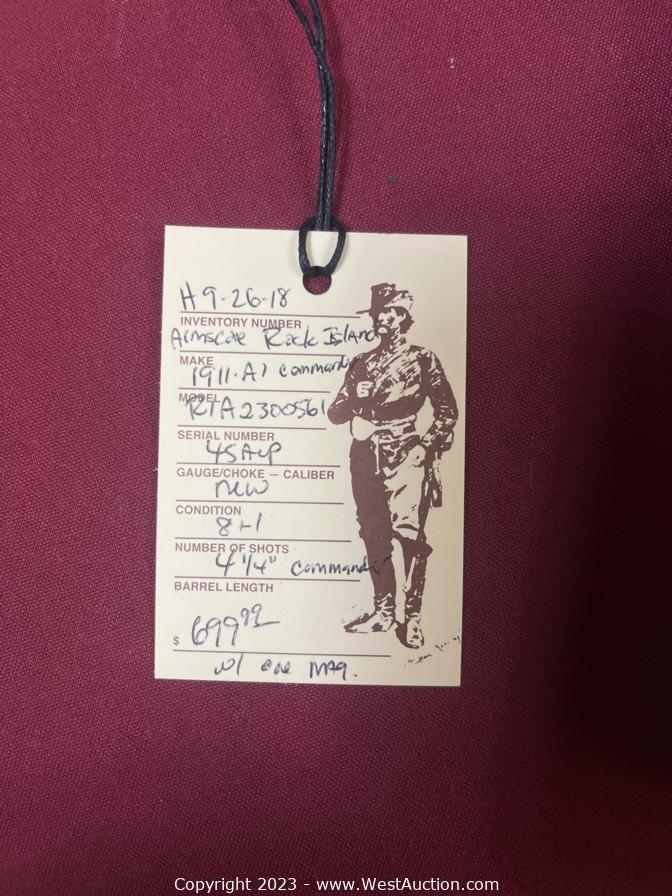 H 9-26-18
INVENTORY NUMBER
Armscor Rock Island
MAKE
1911-A1 Commander
MODEL
RIA2300561
SERIAL NUMBER
45 ACP
GAUGE/CHOKE — CALIBER
new
CONDITION
8+1
NUMBER OF SHOTS
4 1/4" Commander
BARREL LENGTH
$ 699.99
w/ one mag.
Copyright 2023 - www.WestAuction.com